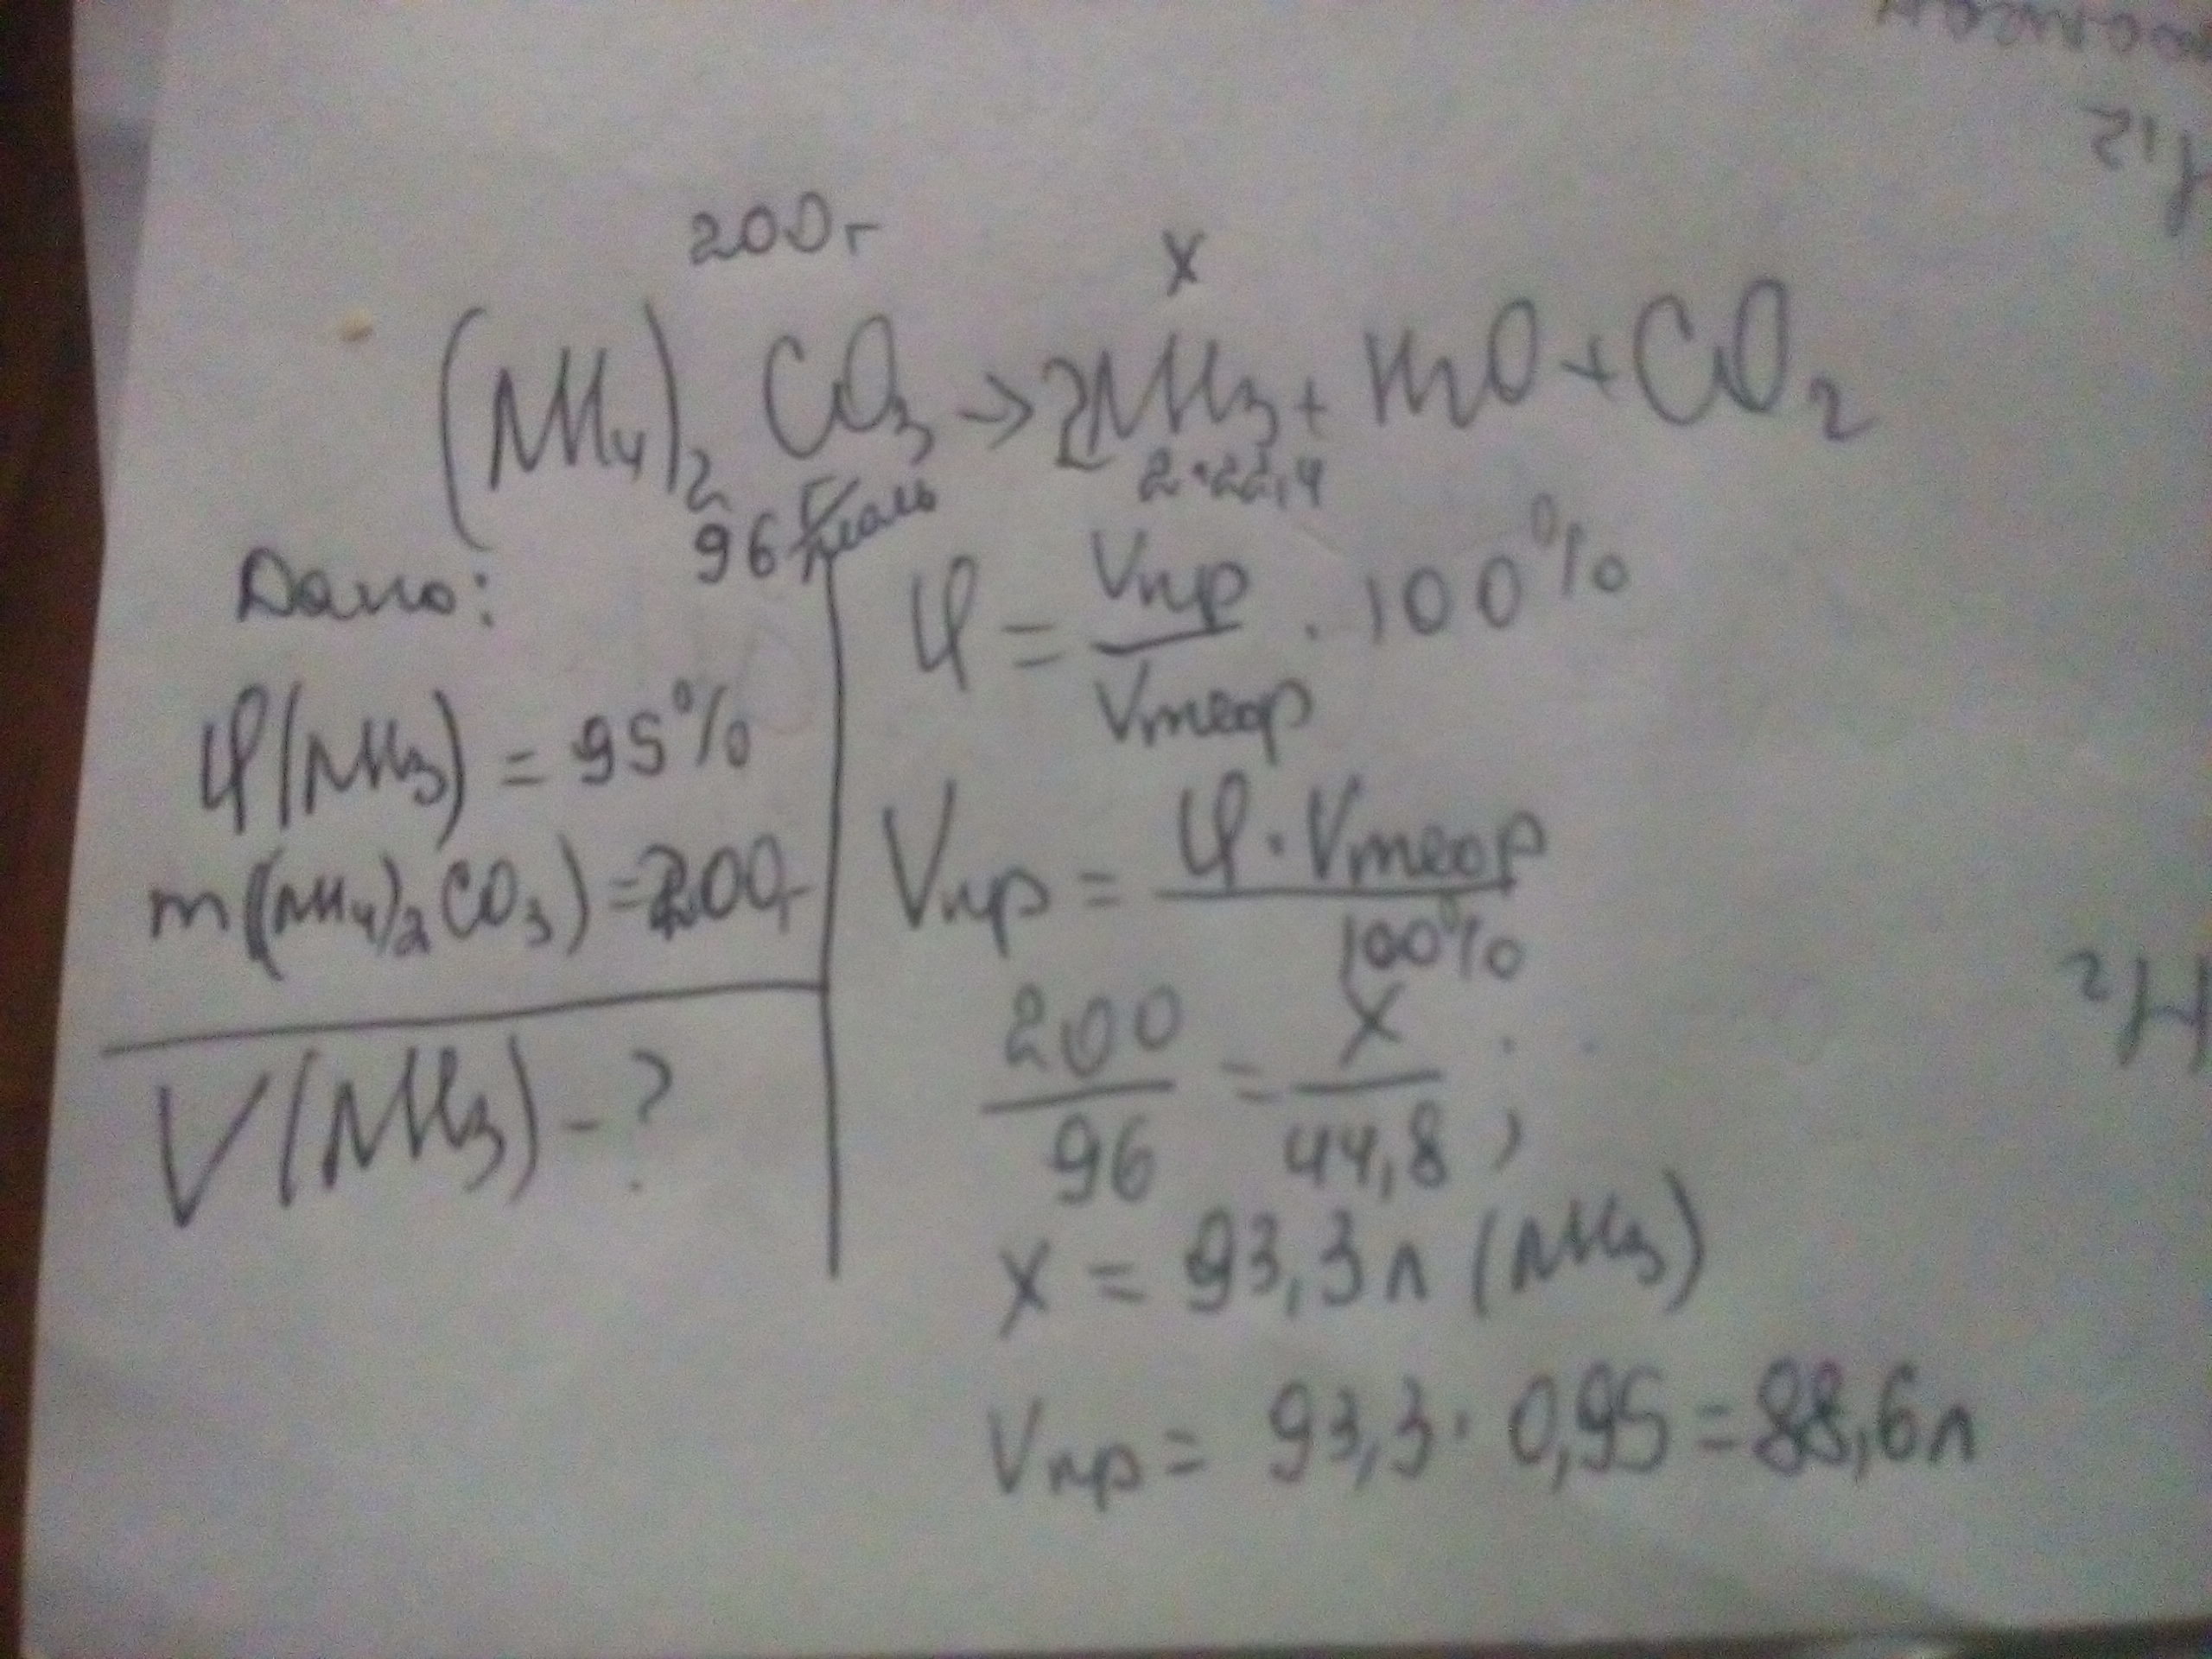 200г
x
(NH₄)₂ CO₃ → 2NH₃ + H₂O + CO₂
96 г/моль
2·22,4
Дано:
φ(NH₃) = 95%
m((NH₄)₂CO₃) = 200г
V(NH₃) - ?
φ = Vпр / Vтеор · 100%
Vпр = φ · Vтеор / 100%
200 / 96 = x / 44,8 ;
x = 93,3л (NH₃)
Vпр = 93,3 · 0,95 = 88,6л
H₂